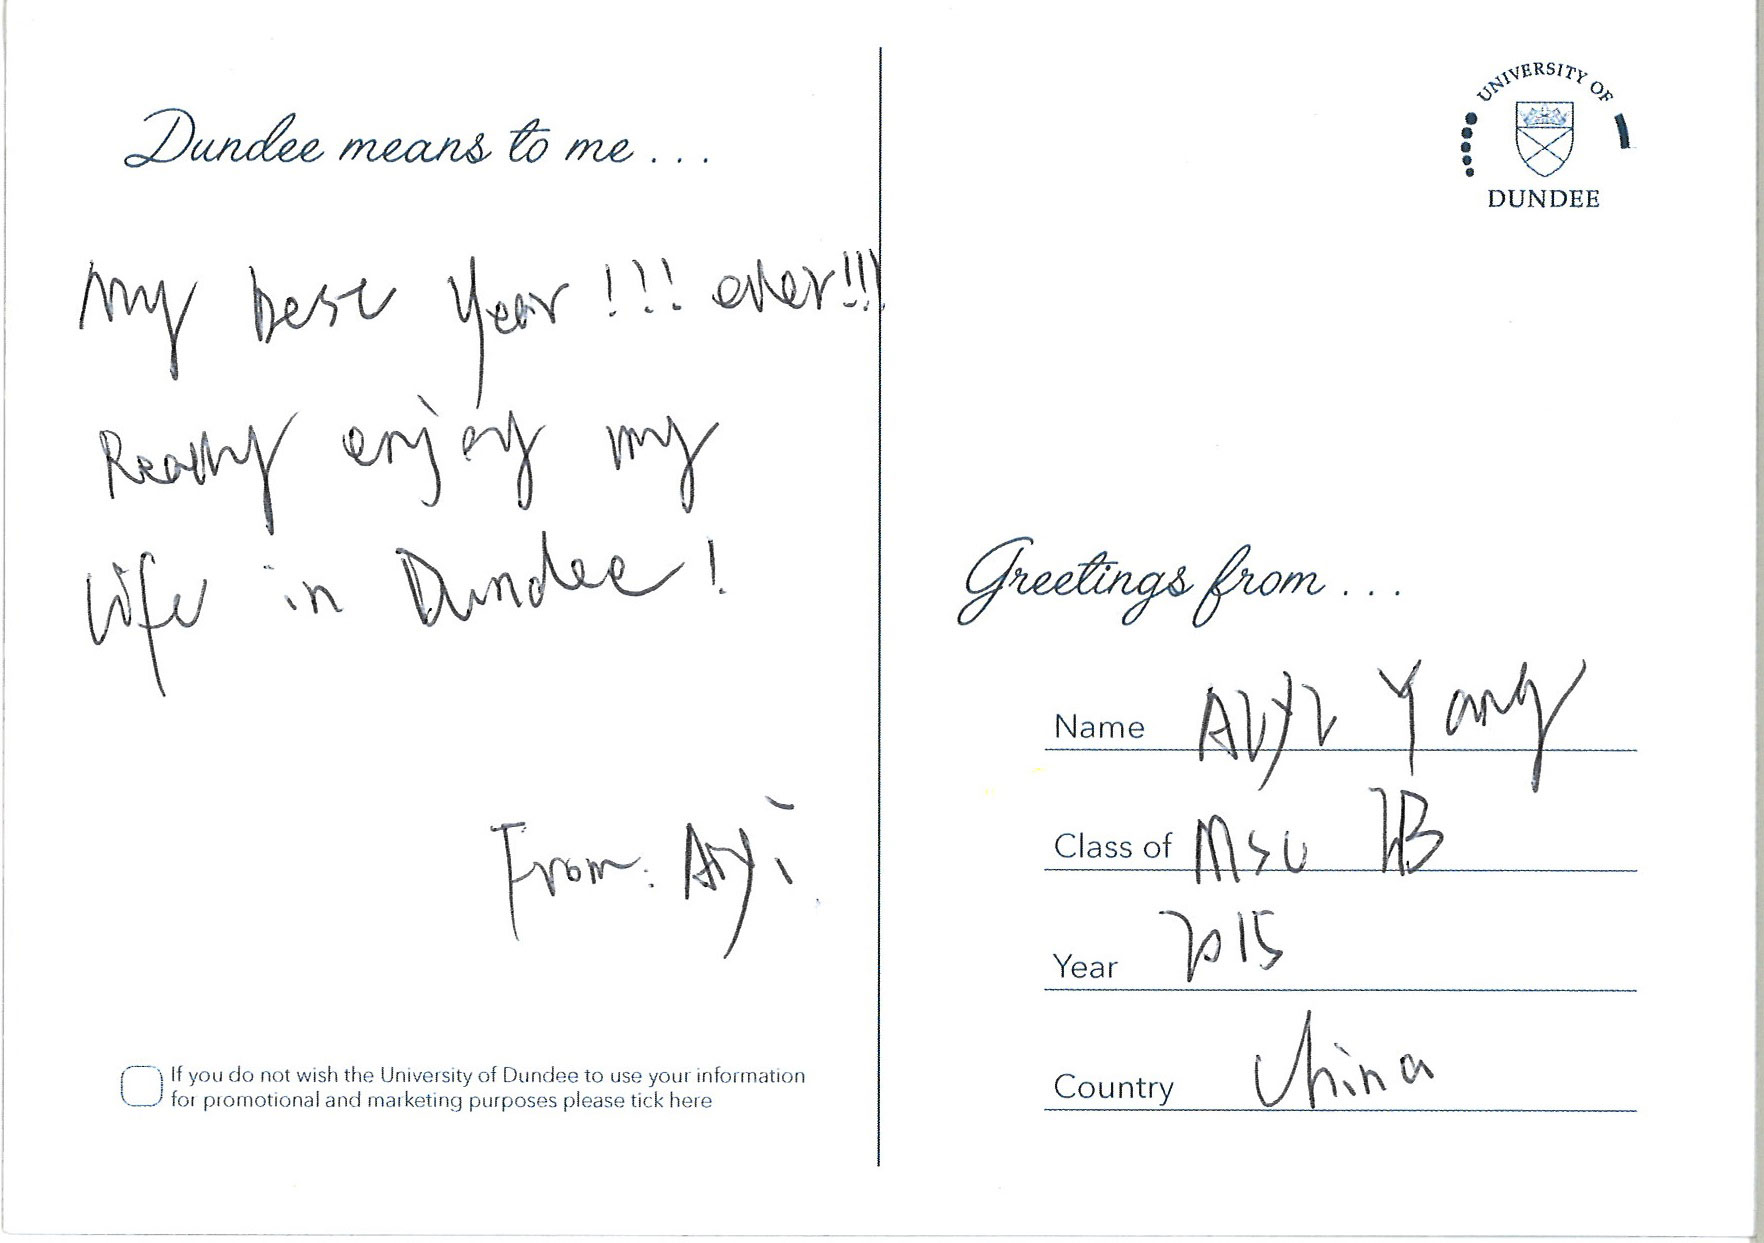 Dundee means to me . . .
My best year !!! ever!!!
Really enjoy my
life in Dundee !
From: Aiyi
If you do not wish the University of Dundee to use your information
for promotional and marketing purposes please tick here
UNIVERSITY OF
DUNDEE
Greetings from . . .
Name Aiyi Yang
Class of Msc IB
Year 2015
Country China